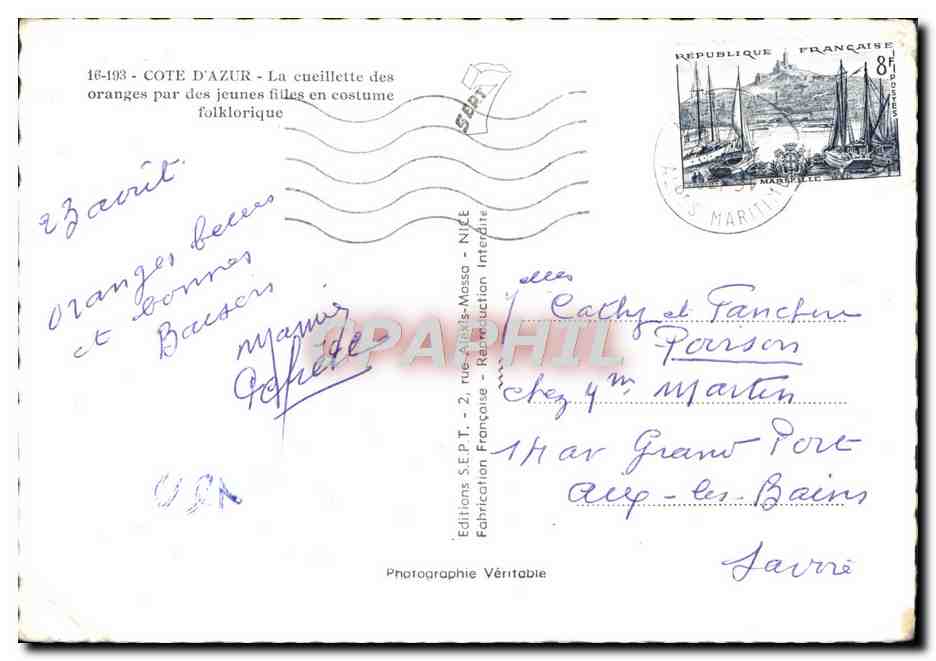 16-193 - COTE D'AZUR - La cueillette des
oranges par des jeunes filles en costume
folklorique
SEPT
7
RÉPUBLIQUE FRANÇAISE
8F
POSTES
MARSEILLE
MARITIMES
23 août
oranges
et bonnes
Mamie
Editions S.E.P.T. - 2, rue Alexis-Mossa - NICE
Fabrication Française - Reproduction Interdite
CPAPHIL
Melles
Cathy et
Poirson
chez Mme Martin
av Grand Port
Aix-les-Bains
Savoie
Photographie Véritable